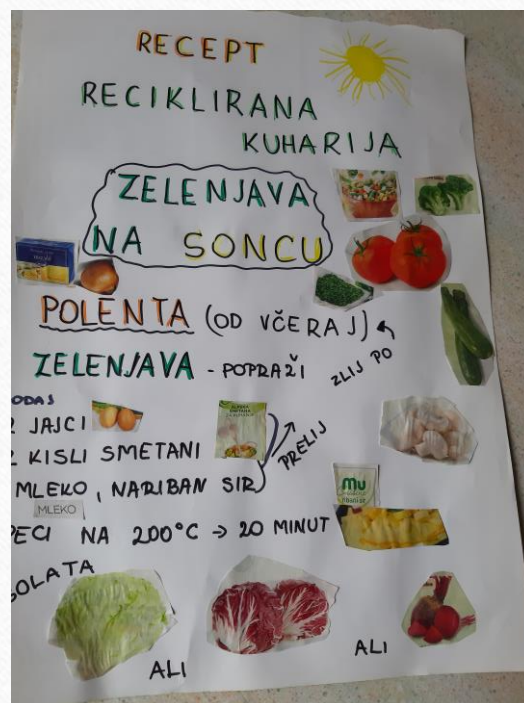 RECEPT
RECIKLIRANA
KUHARIJA
ZELENJAVA
NA SONCU
POLENTA (OD VČERAJ)
ZELENJAVA - POPRAŽI ZLIJ PO
ODAJ
2 JAJCI
2 KISLI SMETANI
PRELIJ
MLEKO, NARIBAN SIR
mu
MLEKO
PECI NA 200°C → 20 MINUT
SOLATA
ALI
ALI